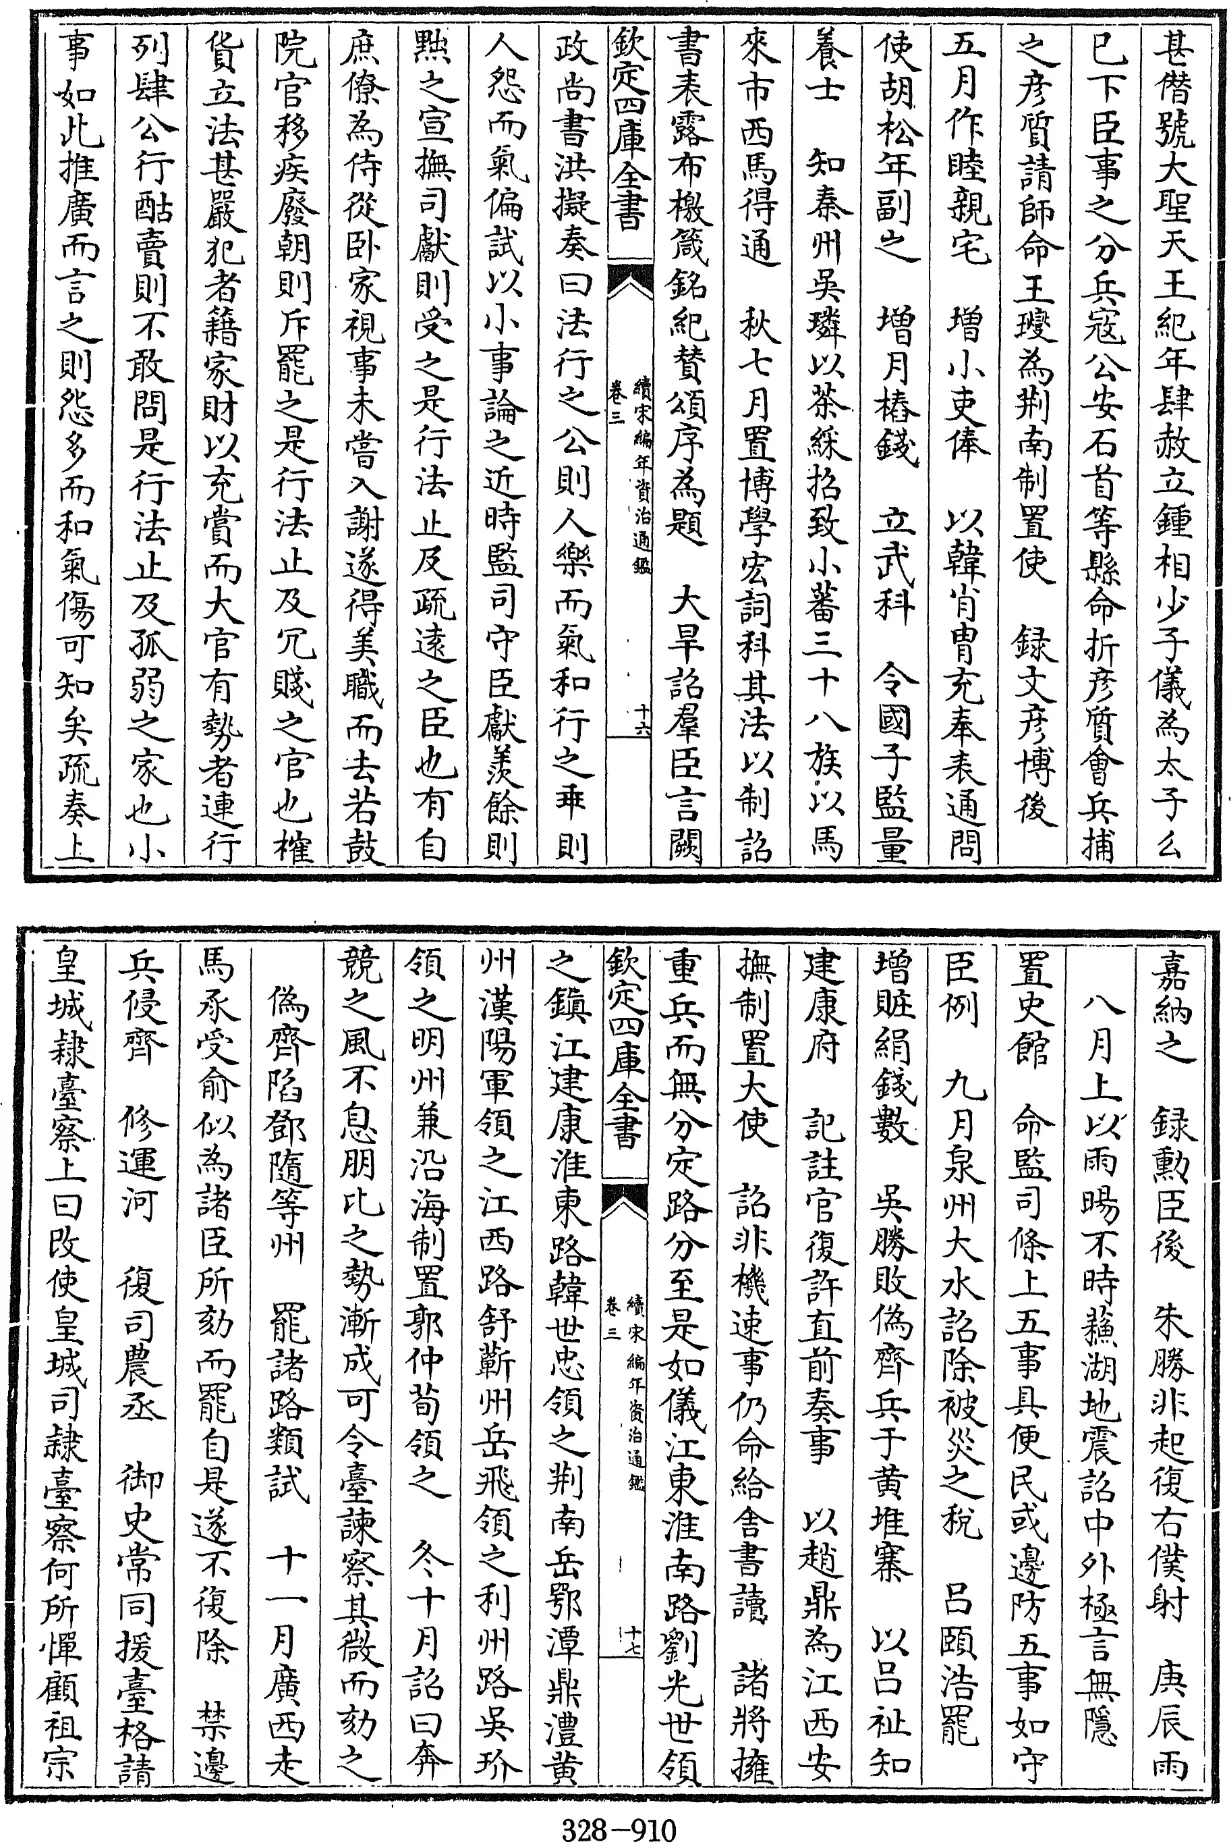 甚僣號大聖天王紀年肆赦立鍾相少子儀為太子么
已下臣事之分兵寇公安石首等縣命折彦質會兵捕
之彦質請師命王𤫉為荆南制置使　録文彦博後
五月作睦親宅　增小吏俸　以韓肖胄充奉表通問
使胡松年副之　增月樁錢　立武科　令國子監量
養士　知秦州吳璘以茶綵招致小蕃三十八族以馬
來市西馬得通　秋七月置博學宏詞科其法以制詔
書表露布檄箴銘紀賛頌序為題　大旱詔羣臣言闕
欽定四庫全書
續宋編年資治通鑑
卷三
十六
政尚書洪擬奏曰法行之公則人樂而氣和行之乖則
人怨而氣偏試以小事論之近時監司守臣獻羨餘則
黜之宣撫司獻則受之是行法止及疏逺之臣也有自
庶僚為侍從卧家視事未嘗入謝遂得美職而去若鼓
院官移疾廢朝則斥罷之是行法止及冗賤之官也榷
貨立法甚嚴犯者籍家財以充賞而大官有勢者連行
列肆公行酤賣則不敢問是行法止及孤弱之家也小
事如此推廣而言之則怨多而和氣傷可知矣疏奏上
嘉納之　録勲臣後　朱勝非起復右僕射　庚辰雨
八月上以雨暘不時蘓湖地震詔中外極言無隱
置史館　命監司條上五事具便民或邊防五事如守
臣例　九月泉州大水詔除被災之稅　吕頤浩罷
增賍絹錢數　吳勝敗偽齊兵于黄堆寨　以吕祉知
建康府　記註官復許直前奏事　以趙鼎為江西安
撫制置大使　詔非機速事仍命給舍書讀　諸將擁
重兵而無分定路分至是如儀江東淮南路劉光世領
欽定四庫全書
續宋編年資治通鑑
卷三
十七
之鎮江建康淮東路韓世忠領之荆南岳鄂潭鼎澧黄
州漢陽軍領之江西路舒蘄州岳飛領之利州路吳玠
領之明州兼沿海制置郭仲荀領之　冬十月詔曰奔
競之風不息朋比之勢漸成可令臺諫察其微而劾之
偽齊陷鄧隨等州　罷諸路類試　十一月廣西走
馬承受俞似為諸臣所劾而罷自是遂不復除　禁邊
兵侵齊　修運河　復司農丞　御史常同援臺格請
皇城隸臺察上曰改使皇城司隸臺察何所憚顧祖宗
328-910